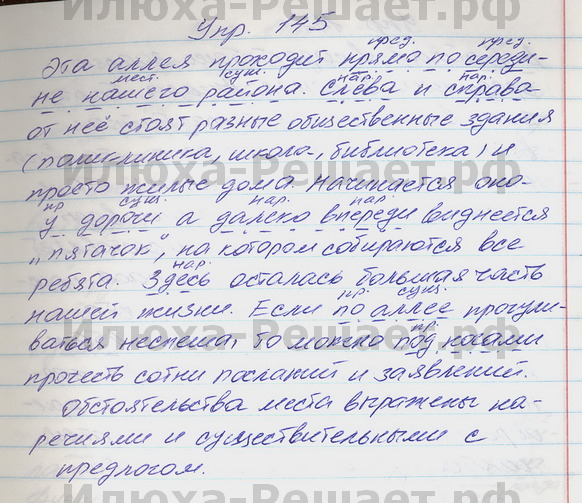 Илюха-Решает.рф
Упр. 145
пред. пред.
Эта аллея проходит прямо по середи-
мест. сущ. нар. нар.
не нашего района. Слева и справа
от неё стоят разные общественные здания
(поликлиника, школа, библиотека) и
просто жилые дома. Начинается она
пр сущ. нар. нар.
у дороги а далеко впереди виднеется
„пятачок", на котором собираются все
нар.
ребята. Здесь осталась большая часть
пр. сущ.
нашей жизни. Если по аллее прогули-
пр.
ваться неспеша, то можно под ногами
прочесть сотни посланий и заявлений.
Обстоятельства места выражены на-
речиями и существительными с
предлогом.
Илюха-Решает.рф
Илюха-Решает.рф